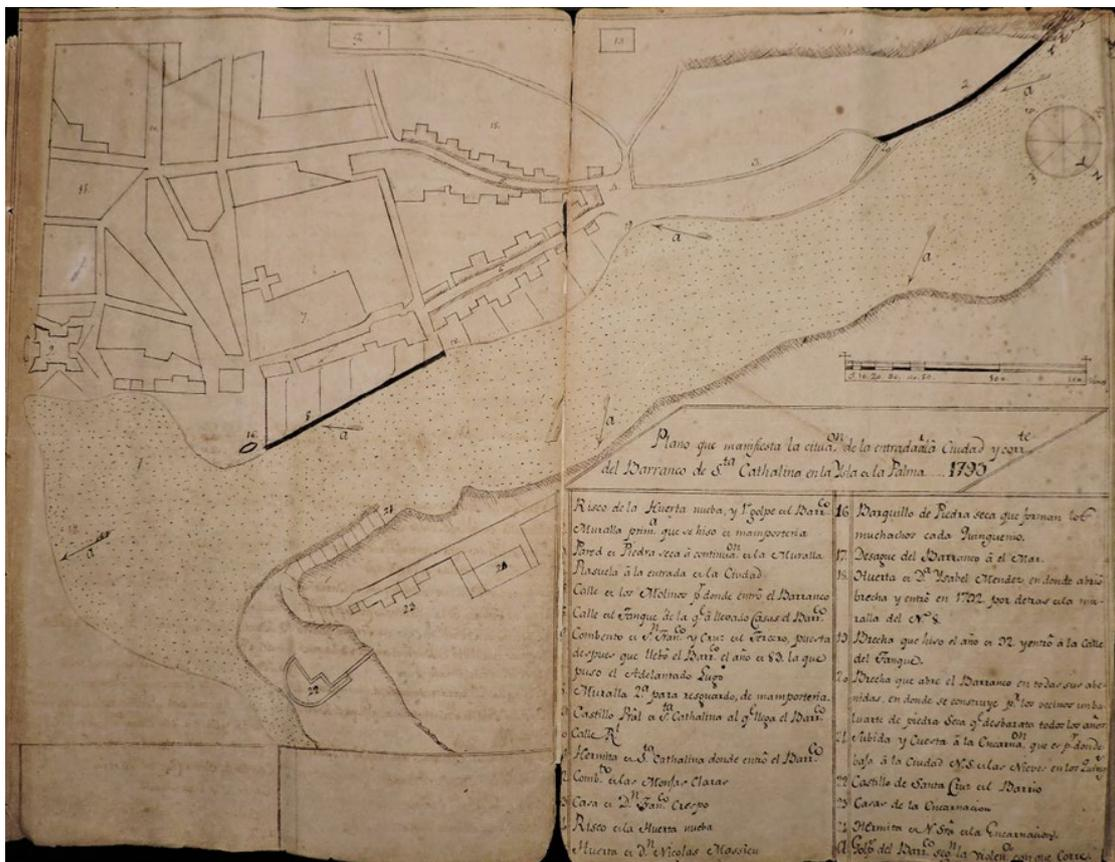 Plano que manifiesta la cituaon. de la entrada alã Ciudad y corrte.
del Barranco de Sta. Cathalina en la Ysla de la Palma..... 1793
Risco de la Huerta nueba, y 1r. golpe del Barrco.
Muralla prima. que se hiso de mamposteria
Pared de Piedra seca à continuaon. de la Muralla
Plasuela â la entrada de la Ciudad
Calle de los Molinos pr. donde entrô el Barranco
Calle del Tanque de la qe. à llevado Casas el Barrco.
Combento de Sn. Franco. y Cruz del Tercero, puesta
despues que llebô el Barrco. el año de 83. la que
puso el Adelantado Lugo
Muralla 2a. para resguardo, de mamposteria.
Castillo Rial de Sta. Cathalina al qe. llega el Barrco.
Calle Rl.
Hermita de Sta. Cathalina donde entrô el Barrco.
Combto. de las Monjas Claras
Casa de Dn. Franco. Crespo
Risco de la Huerta nueba
Huerta de Dn. Nicolas Massieu
16 Barquillo de Piedra seca que forman los
muchachos cada Quinquenio.
17. Desague del Barranco à el Mar.
18. Huerta de Da. Ysabel Mendez, en donde abriô
brecha y entrô en 1792. por detras de la mu-
ralla del No. 8.
19 Brecha que hiso el año de 92. y entrô â la Calle
del Tanque.
20 Brecha que abre el Barranco en todas sus abe-
nidas, en donde se construye pr. los vecinos un ba-
luarte de piedra seca qe. desbarata todos los años
21 Subida y Cuesta â la Encarnaon. que es pr. donde
baja â la Ciudad N.S. de las Nieves en los Quinqs.
22 Castillo de Santa Cruz del Barrio
23 Casas de la Encarnacion
24 Hermita de N. Sra. de la Encarnacion.
a Golpe del Barrco. segn. la Violena. con que Corre.